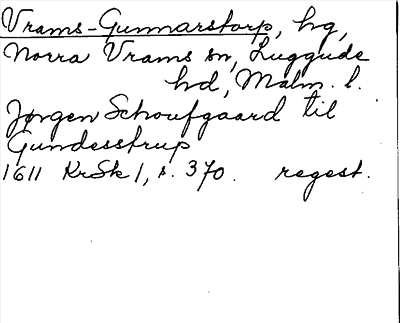 Vrams-Gunnarstorp, hg,
Norra Vrams sn, Luggude
hd, Malm. l.
Jørgen Schoufgaard til
Gundesstrup
1611 KrSk 1, s. 370. regest.